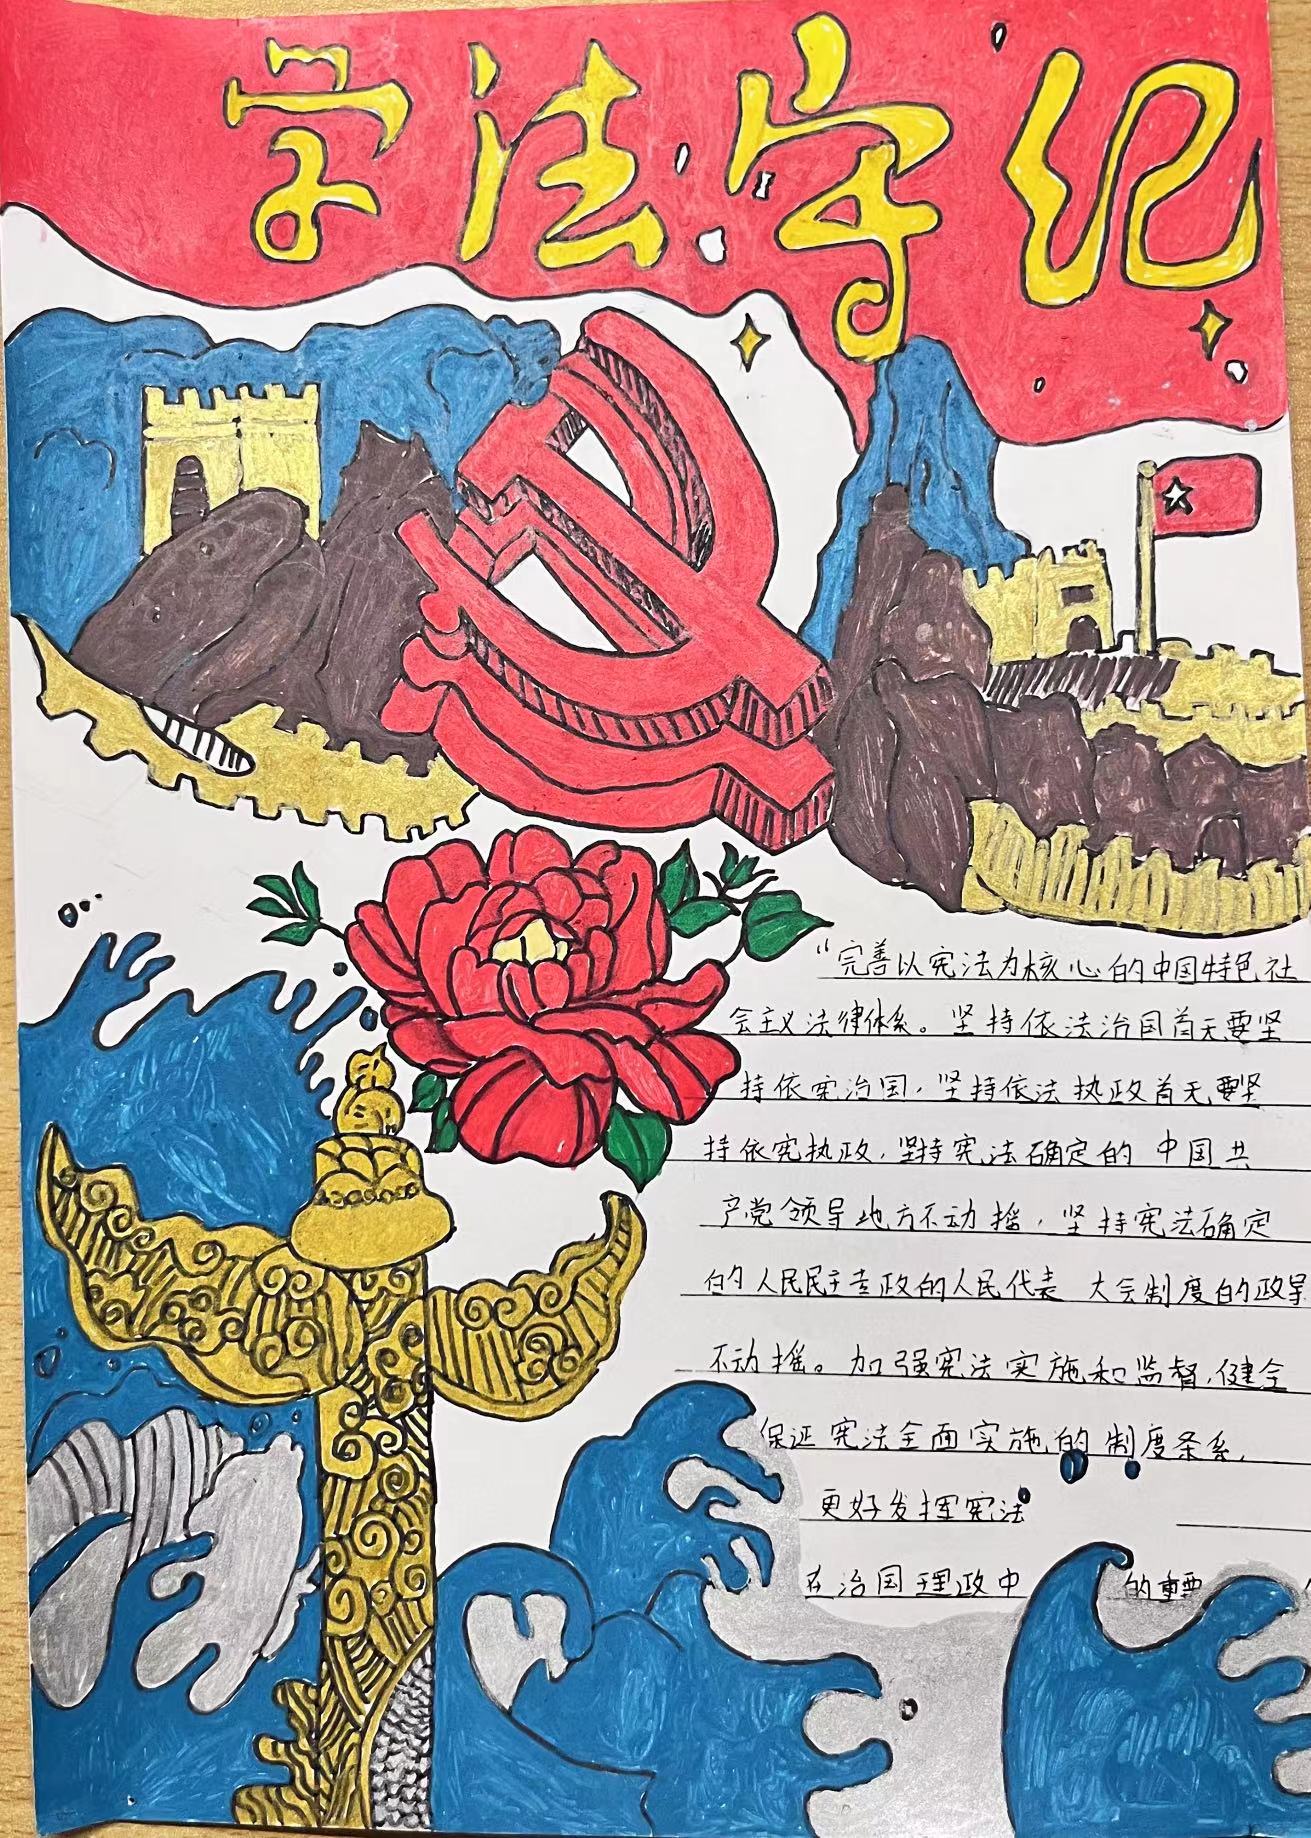 学法守纪
“完善以宪法为核心的中国特色社
会主义法律体系。坚持依法治国首先要坚
持依宪治国，坚持依法执政首先要坚
持依宪执政，坚持宪法确定的中国共
产党领导地方不动摇，坚持宪法确定
的人民民主专政的人民代表大会制度的政导
不动摇。加强宪法实施和监督，健全
保证宪法全面实施的制度条系，
更好发挥宪法
在治国理政中的重要